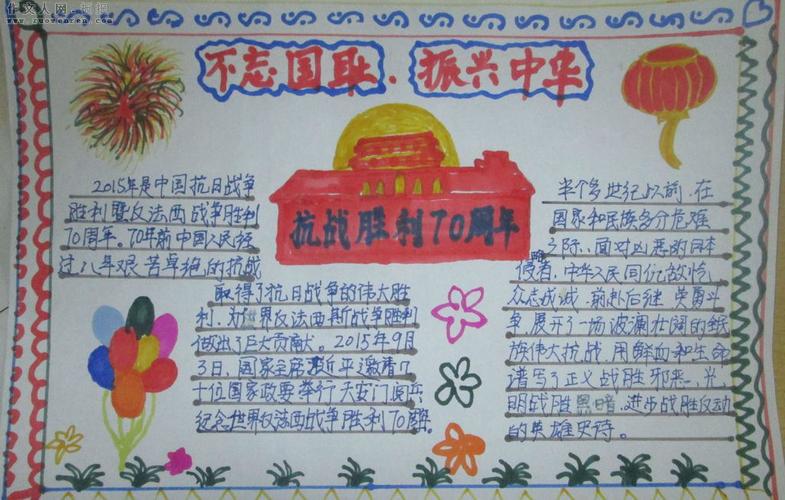 作文人网·编辑
www.zuowenren.com
不忘国耻、振兴中华
抗战胜利70周年
2015年是中国抗日战争
胜利暨反法西战争胜利
70周年。70年前中国人民经
过八年艰苦卓绝的抗战
取得了抗日战争的伟大胜
利,为世界反法西斯战争胜利
做出了巨大贡献。2015年9月
3日,国家主席习近平邀请几
十位国家政要举行天安门阅兵
纪念世界反法西战争胜利70周年。
半个多世纪以前,在
国家和民族多分危难
之际、面对凶恶的日本
侵略者,中华人民同仇敌忾,
众志成城,前赴后继,英勇斗
争,展开了一场波澜壮阔的
族伟大抗战,用鲜血和生命
谱写了正义战胜邪恶、光
明战胜黑暗、进步战胜反动
的英雄史诗。